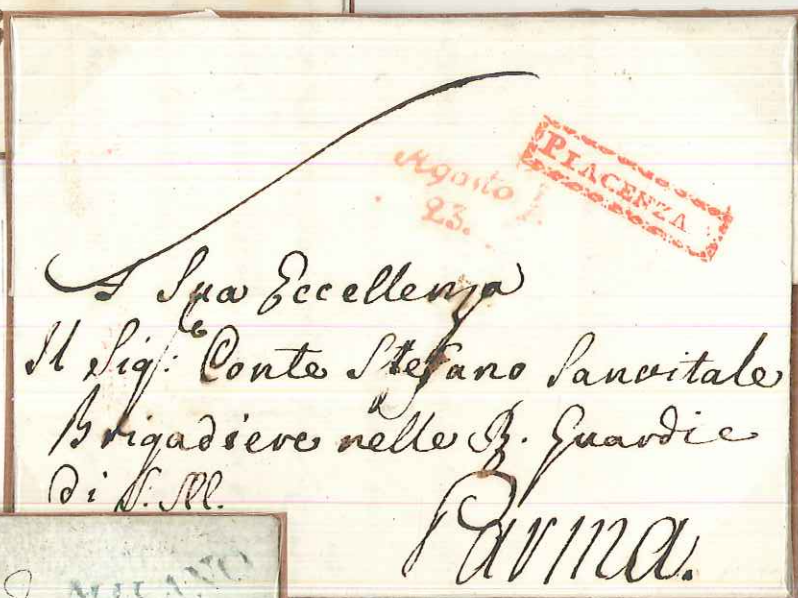 PIACENZA
Agosto
23.
A Sua Eccellenza
Il Sig:e Conte Stefano Sanvitale
Brigadiere nelle R. Guardie
di S. M.
Parma.
MILANO